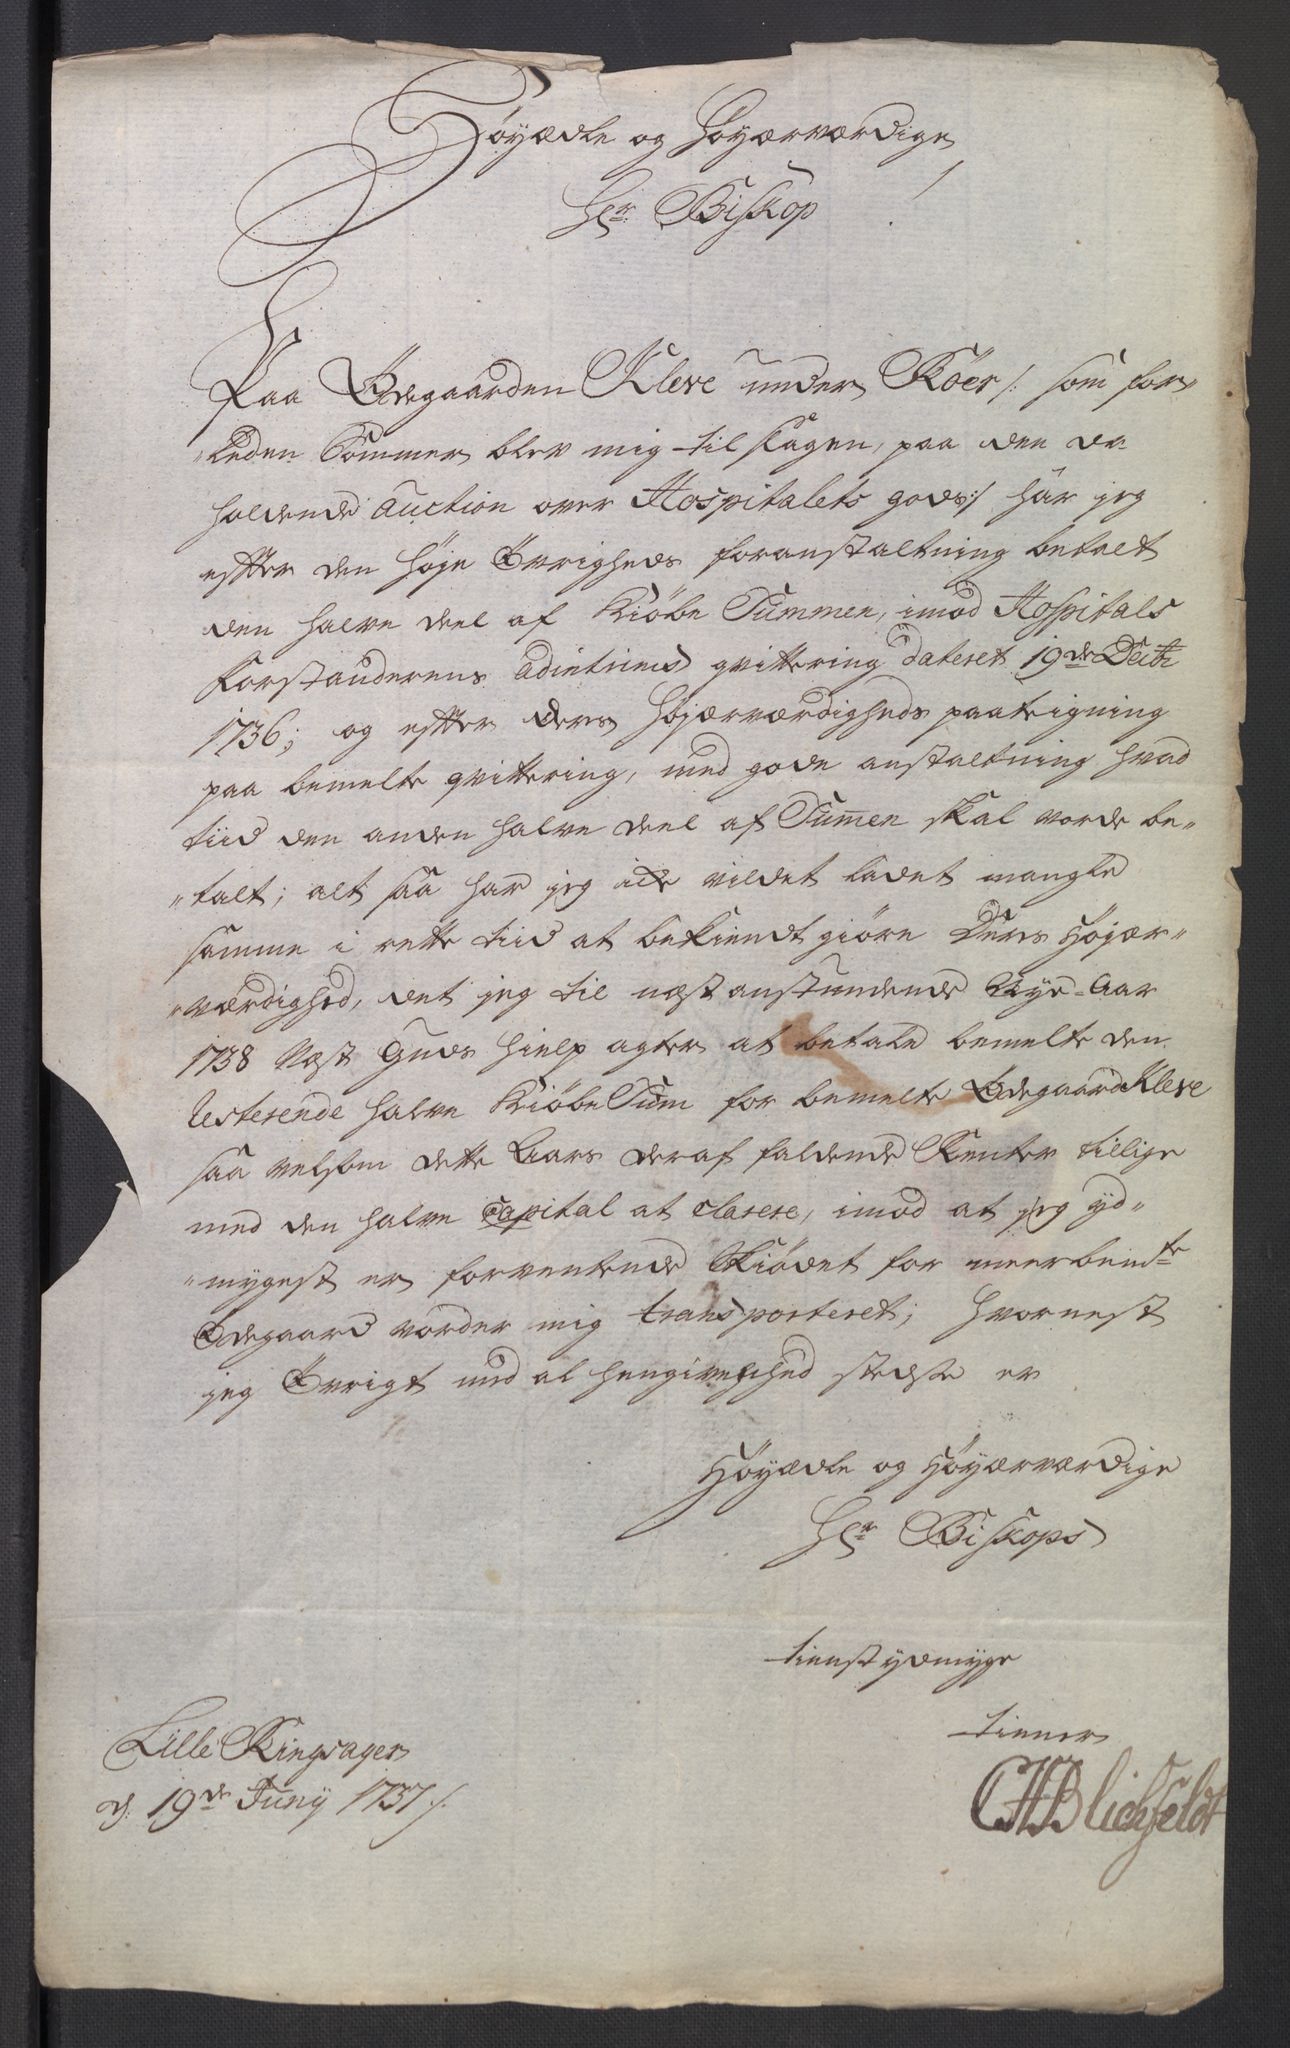 Höyædle og Høyærværdige
Hr. Biskop
Paa Ödegaarden Kleve under Röer /: som for-
„leden Sommer blev mig tilslagen, paa den da
holdende Auction over Hospitalets gods :/ har jeg
efter den høje Övrigheds foranstaltning betalt
den halve deel af Kiöbe Summen, imod Hospitals
Forstanderens qvittering dateret 19de
1736; og efter Deres Højærværdigheds paategning
paa bemelte qvittering, med gode anstaltning hvad
tiid den anden halve deel af Sum̄en skal vorde be„
„talt; alt saa har jeg icke vildet ladet mangle
samme i rette tiid at bekiendt giöre Deres Höjær„
„værdighed, det jeg til næst anstundende Nye-Aar
1738 næst Guds hielp agter at betale bemelte den
Resterende halve Kiöbe Sum for bemelte Ödegaard Kleve
saa velsom dette Aars deraf faldende Renter tillige
med den halve Capital at clarere, imod at jeg yd„
„mygest er forventende Skiödet for meerbemte
Ödegaard vorder mig transporteret; hvornest
jeg Övrigt med al hengivenhed stedse er
Höyædle og Höyærværdige
Hr. Biskops
tienstydmyge
tienner
CHBlichfeldt
Lille Ringsager
d. 19de Junij 1737 /.